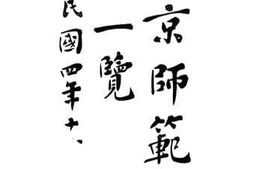 京師範
一覽
民國四年十